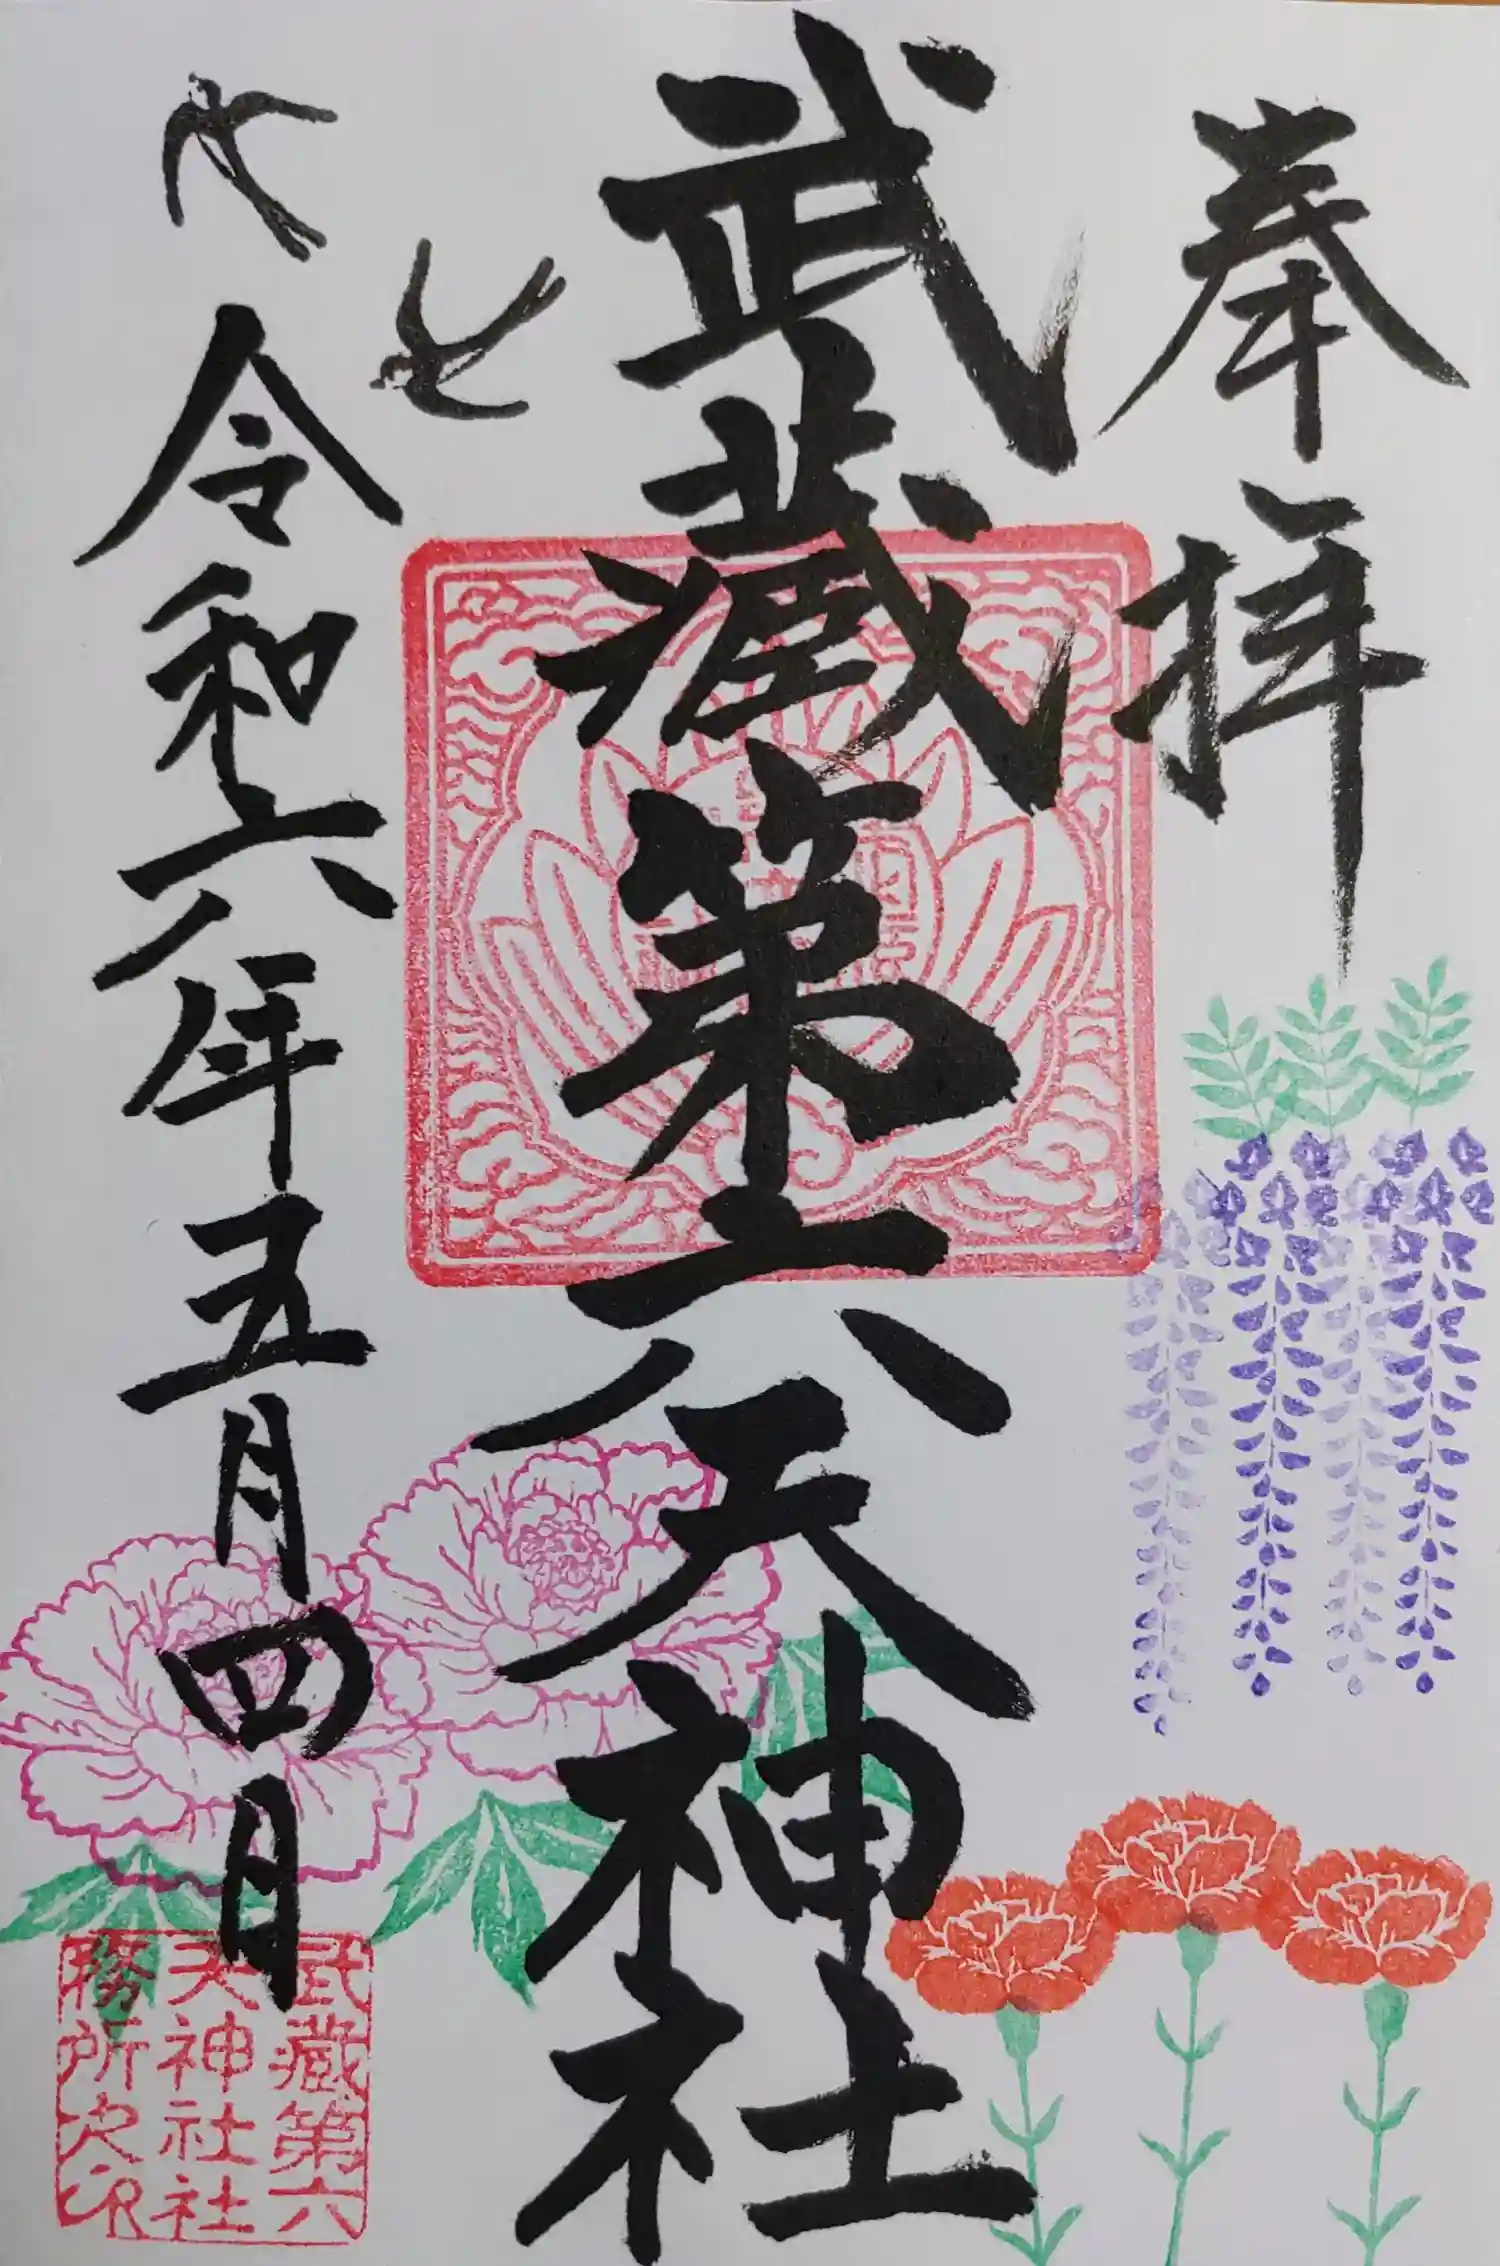 奉拝
武蔵第六天神社
令和六年五月四日
武蔵第六
天神社社
務所之印